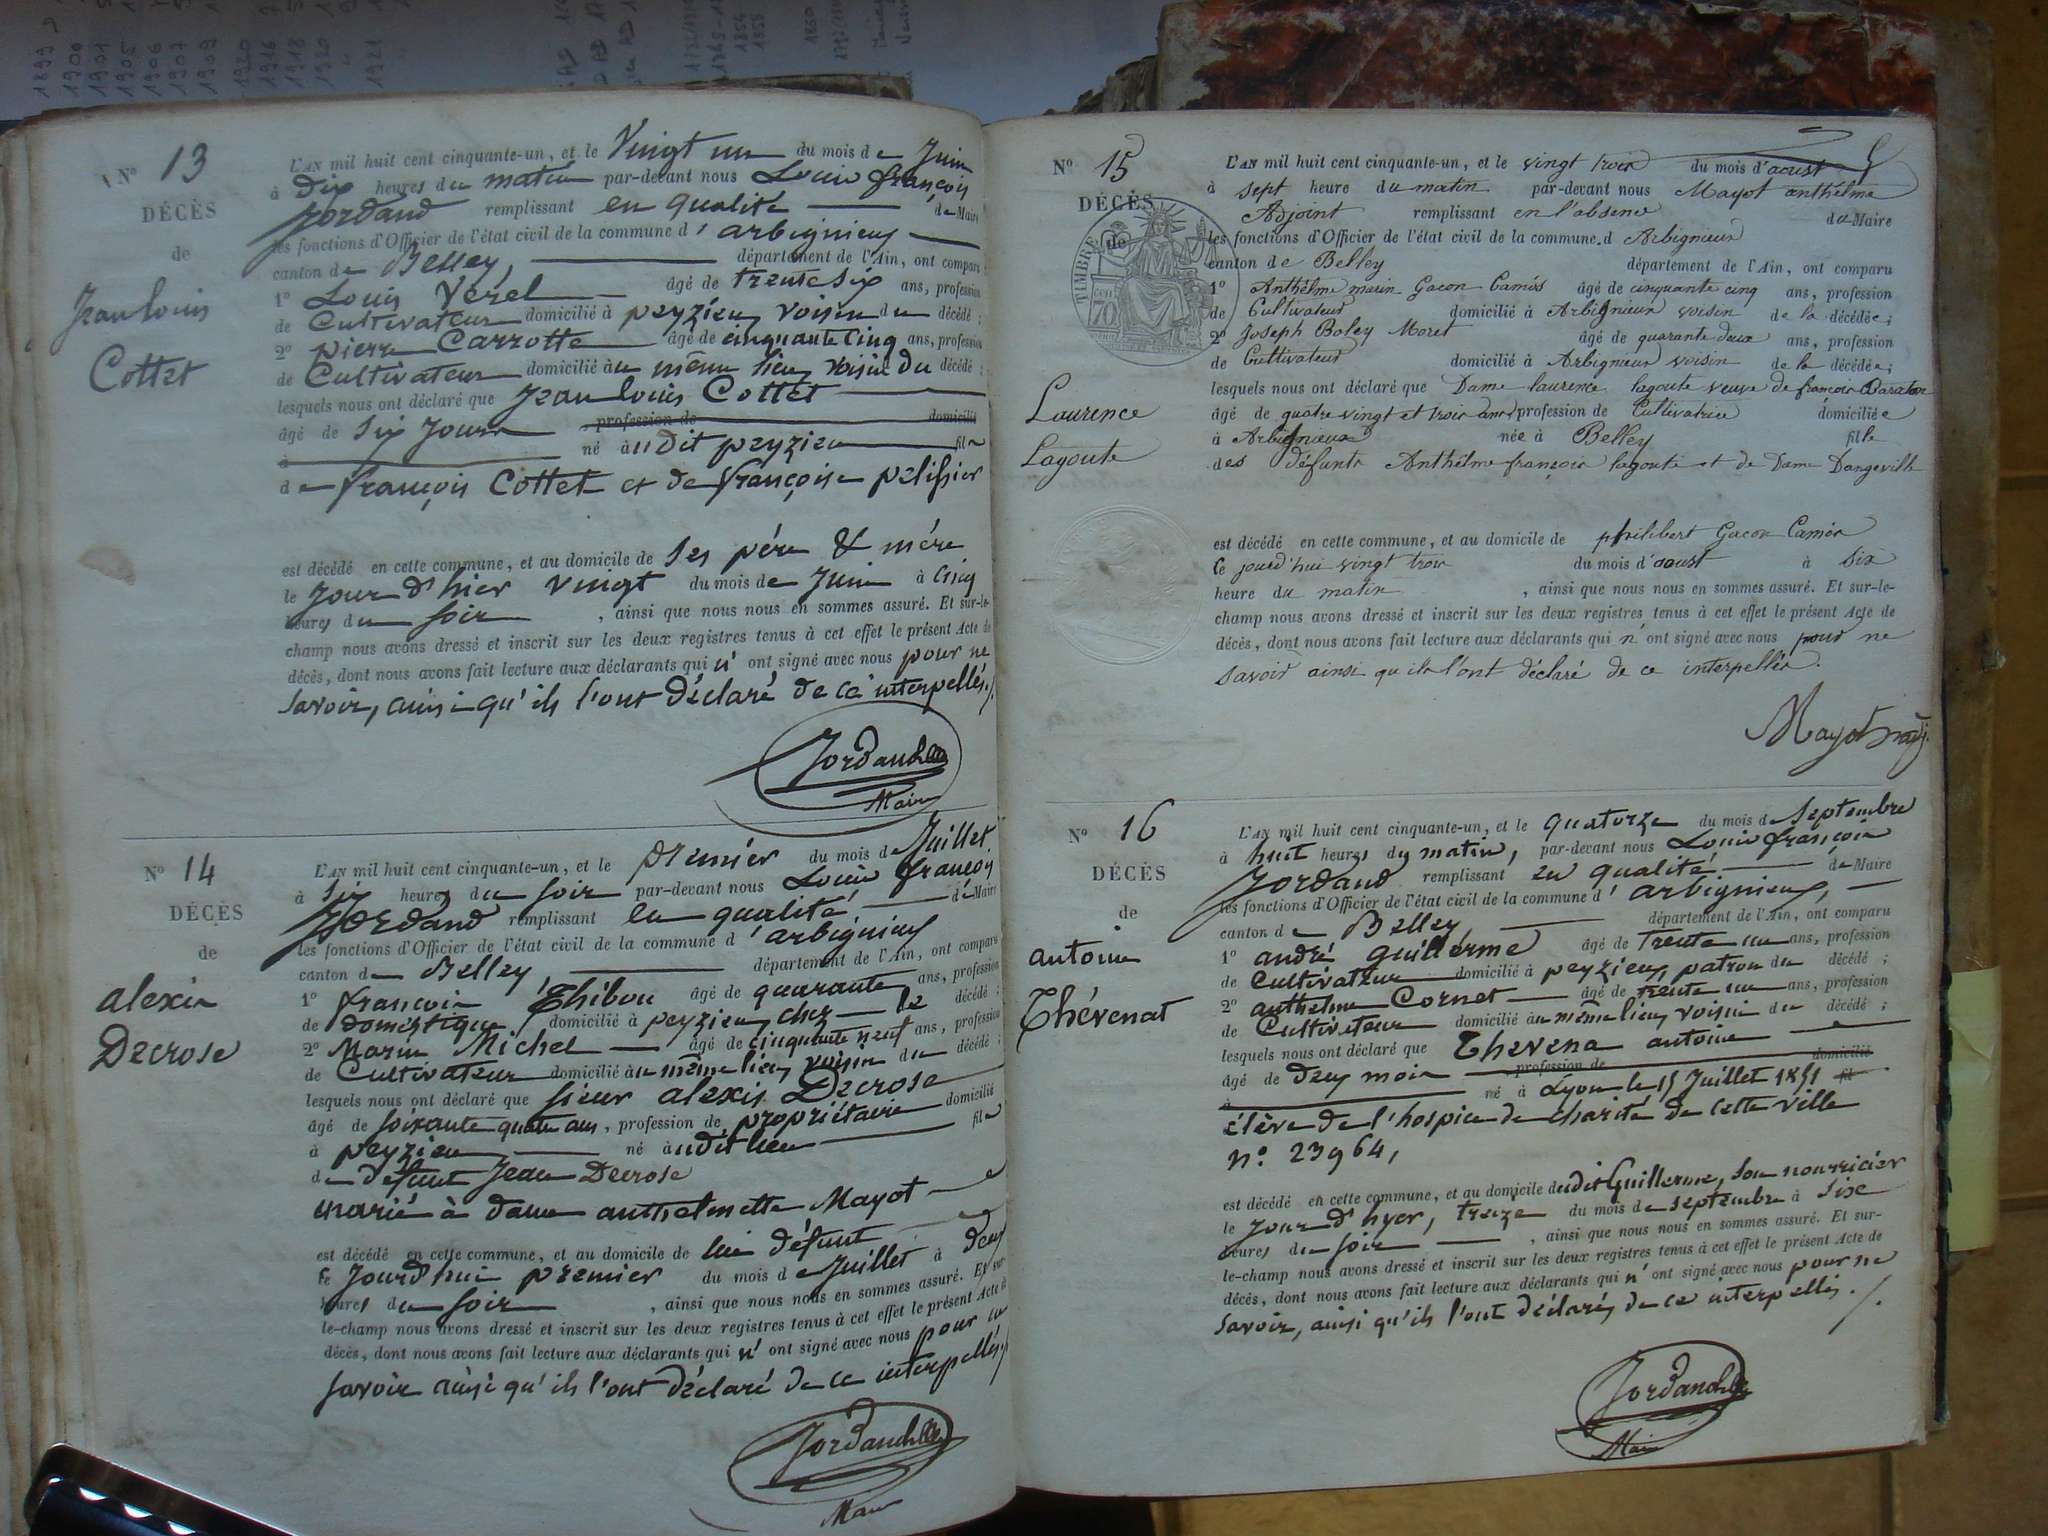 N° 13
DÉCÈS
de
Jean louis
Cottet
L'AN mil huit cent cinquante-un, et le Vingt un du mois de Juin
à Dix heures du matin par-devant nous Louis françois
Jordand remplissant en qualité de Maire
les fonctions d'Officier de l'état civil de la commune d'arbignieu
canton de Belley, département de l'Ain, ont comparu
1° Louis Verel âgé de trente six ans, profession
de Cultivateur domicilié à peyzieu voisin du décédé ;
2° pierre Carrotte âgé de cinquante cinq ans, profession
de Cultivateur domicilié au même lieu, voisin du décédé ;
lesquels nous ont déclaré que Jean louis Cottet
âgé de six Jours profession de domicilié
à né audit peyzieu fils
de françois Cottet et de françoise pelissier
est décédé en cette commune, et au domicile de ses père & mère
le Jour d'hier vingt du mois de Juin à cinq
heures du soir , ainsi que nous nous en sommes assuré. Et sur-le-
champ nous avons dressé et inscrit sur les deux registres tenus à cet effet le présent Acte de
décès, dont nous avons fait lecture aux déclarants qui n' ont signé avec nous pour ne
savoir, ainsi qu'ils l'ont déclaré de ce interpellés./.
Jordand
Maire
N° 14
DÉCÈS
de
alexis
Decrose
L'AN mil huit cent cinquante-un, et le premier du mois de Juillet
à six heures du soir par-devant nous Louis françois
Jordand remplissant en qualité de Maire
les fonctions d'Officier de l'état civil de la commune d'arbignieu
canton de Belley, département de l'Ain, ont comparu
1° françois Thibou âgé de quarante ans, profession
de domestique domicilié à peyzieu chez le décédé ;
2° Marin Michel âgé de cinquante neuf ans, profession
de Cultivateur domicilié au même lieu, voisin du décédé ;
lesquels nous ont déclaré que sieur alexis Decrose
âgé de soixante quatre ans, profession de propriétaire domicilié
à peyzieu né audit lieu fils
de défunt Jean Decrose
marié à dame anthelmette Mayot
est décédé en cette commune, et au domicile de lui défunt
le Jourd'hui premier du mois de Juillet à deux
heures du soir , ainsi que nous nous en sommes assuré. Et sur-
le-champ nous avons dressé et inscrit sur les deux registres tenus à cet effet le présent Acte de
décès, dont nous avons fait lecture aux déclarants qui n' ont signé avec nous pour ne
savoir ainsi qu'ils l'ont déclaré de ce interpellés./.
Jordand
Maire
N° 15
DÉCÈS
de
TIMBRE
70
Laurence
Lagoute
L'AN mil huit cent cinquante-un, et le vingt trois du mois d'aoust
à sept heure du matin par-devant nous Mayot anthelme
Adjoint remplissant en l'absence du Maire
les fonctions d'Officier de l'état civil de la commune d Arbignieux
canton de Belley département de l'Ain, ont comparu
1° Anthélme marin Gacon Camés âgé de cinquante cinq ans, profession
de Cultivateur domicilié à Arbignieux voisin de la décédée ;
2° Joseph Boley Moret âgé de quarante deux ans, profession
de Cultivateur domicilié à Arbignieux voisin de la décédée ;
lesquels nous ont déclaré que Dame laurence lagoute veuve de françois Baraton
âgé de quatre vingt et trois ans profession de Cultivatrice domiciliée
à Arbignieux née à Belley fille
des défunts Anthélme françois lagoute et de Dame Dangeville
est décédé en cette commune, et au domicile de philibert Gacon Camés
Ce jourd'hui vingt trois du mois d'aoust à six
heure du matin , ainsi que nous nous en sommes assuré. Et sur-le-
champ nous avons dressé et inscrit sur les deux registres tenus à cet effet le présent Acte de
décès, dont nous avons fait lecture aux déclarants qui n' ont signé avec nous pour ne
savoir ainsi qu'ils l'ont déclaré de ce interpellés.
Mayot
N° 16
DÉCÈS
de
antoine
Thévenat
L'AN mil huit cent cinquante-un, et le quatorze du mois de Septembre
à huit heures du matin, par-devant nous Louis françois
Jordand remplissant en qualité de Maire
les fonctions d'Officier de l'état civil de la commune d'arbignieu,
canton de Belley département de l'Ain, ont comparu
1° andré guillerme âgé de trente un ans, profession
de Cultivateur domicilié à peyzieu, patron du décédé ;
2° anthelme Cornet âgé de trente un ans, profession
de Cultivateur domicilié au même lieu, voisin du décédé ;
lesquels nous ont déclaré que Thevena antoine
âgé de deux mois profession de domicilié
à né à Lyon le 15 Juillet 1851 fil
élève de l'hospice de charité de cette ville
n° 23964,
est décédé en cette commune, et au domicile dudit Guillerme, son nourricier
le Jour d'hyer, treize du mois de septembre à six
heures du soir , ainsi que nous nous en sommes assuré. Et sur-
le-champ nous avons dressé et inscrit sur les deux registres tenus à cet effet le présent Acte de
décès, dont nous avons fait lecture aux déclarants qui n' ont signé avec nous pour ne
savoir, ainsi qu'ils l'ont déclarés de ce interpellés./.
Jordand
Maire